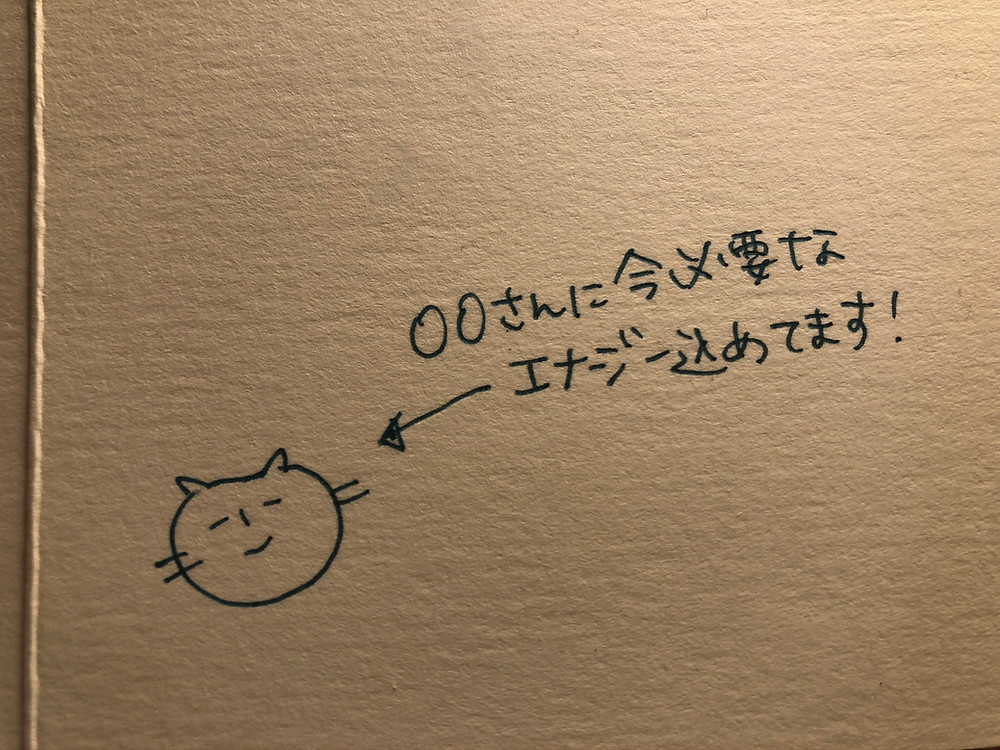 〇〇さんに今必要な
エナジー込めてます!